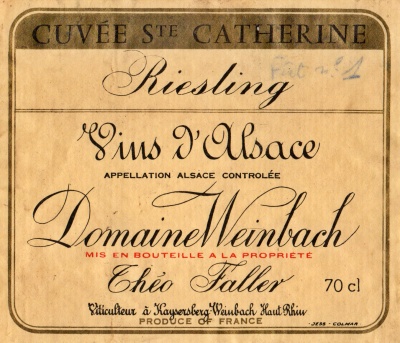 CUVÉE STE CATHERINE
Riesling
Fût n° 1
Vins d'Alsace
APPELLATION ALSACE CONTROLÉE
Domaine Weinbach
MIS EN BOUTEILLE A LA PROPRIÉTÉ
Théo Faller 70 cl
Viticulteur à Kaysersberg-Weinbach Haut-Rhin
PRODUCE OF FRANCE
-JESS-COLMAR